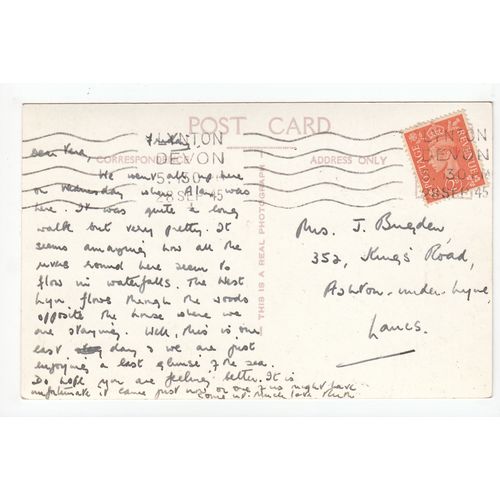 POST CARD
CORRESPONDENCE
ADDRESS ONLY
LYNTON
DEVON
5.30
28 SEP 45
LYNTON
DEVON
30
28 SEP 45
POSTAGE
REVENUE
THIS IS A REAL PHOTOGRAPH
Friday
Dear Vera,
We went all up here
on Wednesday when Alan was
here. It was quite a long
walk but very pretty. It
seems amazing how all the
rivers round here seem to
flow in waterfalls. The West
Lyn flows through the woods
opposite the house where we
are staying. Well, this is our
last day & we are just
enjoying a last glimpse of the sea.
Do hope you are feeling better. It is
unfortunate it came just now or one of us might have
come up. Much love Ruth
Mrs. J. Bugden
352, King's Road,
Ashton-under-Lyne,
Lancs.